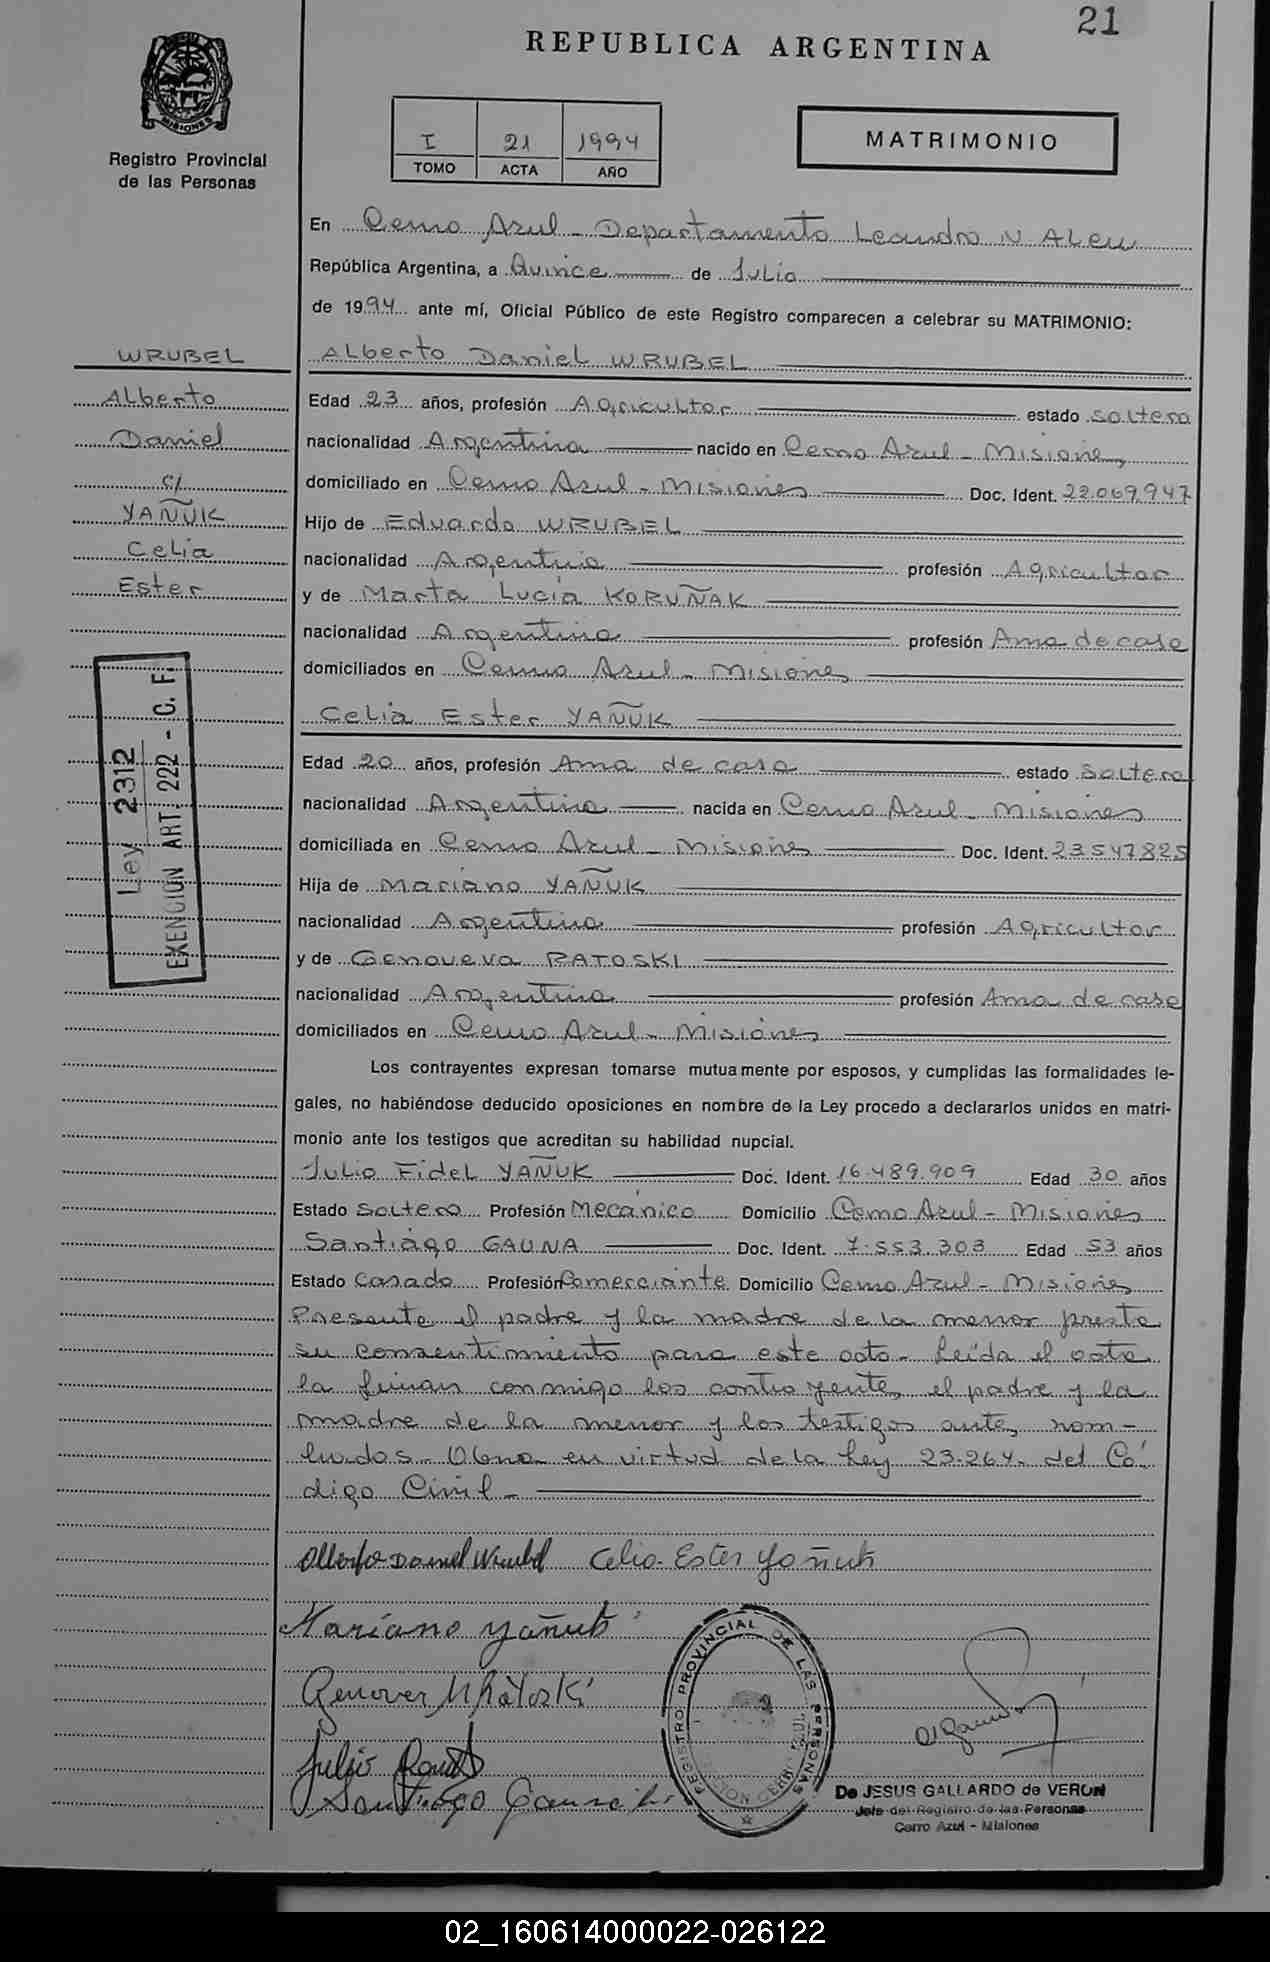 21
REPUBLICA ARGENTINA
MISIONES
Registro Provincial
de las Personas
I 21 1994
TOMO ACTA AÑO
MATRIMONIO
En Cerro Azul - Departamento Leandro N. Alem
República Argentina, a Quince de Julio
de 1994 ante mí, Oficial Público de este Registro comparecen a celebrar su MATRIMONIO:
WRUBEL
Alberto
Daniel
c/
YAÑUK
Celia
Ester
Ley 2312
EXENCION ART. 222 - C. F.
Alberto Daniel WRUBEL
Edad 23 años, profesión Agricultor estado soltero
nacionalidad Argentina nacido en Cerro Azul - Misiones
domiciliado en Cerro Azul - Misiones Doc. Ident. 22.069.947
Hijo de Eduardo WRUBEL
nacionalidad Argentina profesión Agricultor
y de Marta Lucía KORUÑAK
nacionalidad Argentina profesión Ama de casa
domiciliados en Cerro Azul - Misiones
Celia Ester YAÑUK
Edad 20 años, profesión Ama de casa estado soltera
nacionalidad Argentina nacida en Cerro Azul - Misiones
domiciliada en Cerro Azul - Misiones Doc. Ident. 23547825
Hija de Mariano YAÑUK
nacionalidad Argentina profesión Agricultor
y de Genoveva RATOSKI
nacionalidad Argentina profesión Ama de casa
domiciliados en Cerro Azul - Misiones
Los contrayentes expresan tomarse mutuamente por esposos, y cumplidas las formalidades le-
gales, no habiéndose deducido oposiciones en nombre de la Ley procedo a declararlos unidos en matri-
monio ante los testigos que acreditan su habilidad nupcial.
Julio Fidel YAÑUK Doc. Ident. 16.489.909 Edad 30 años
Estado soltero Profesión Mecánico Domicilio Cerro Azul - Misiones
Santiago GAUNA Doc. Ident. 7.553.303 Edad 53 años
Estado Casado Profesión Comerciante Domicilio Cerro Azul - Misiones
Presente el padre y la madre de la menor presta
su consentimiento para este acto - Leída el acta
la firman conmigo los contrayentes, el padre y la
madre de la menor y los testigos antes nom-
brados. Obro en virtud de la Ley 23.264. del Có
digo Civil -
Alberto Daniel Wrubel Celia Ester Yañuk
Mariano Yañuk
Julio
Santiago Gauna
REGISTRO PROVINCIAL DE LAS PERSONAS
De JESUS GALLARDO de VERON
Jefe del Registro de las Personas
Cerro Azul - Misiones
02_160614000022-026122